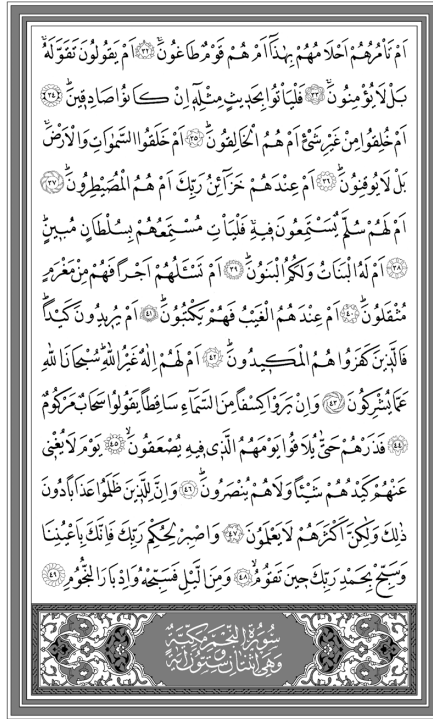 اَمْ تَأْمُرُهُمْ اَحْلَامُهُمْ بِهٰذَٓا اَمْ هُمْ قَوْمٌ طَاغُونَۚ ﴿٣٢﴾ اَمْ يَقُولُونَ تَقَوَّلَهُۚ
بَلْ لَا يُؤْمِنُونَۚ ﴿٣٣﴾ فَلْيَأْتُوا بِحَد۪يثٍ مِثْلِه۪ٓ اِنْ كَانُوا صَادِق۪ينَۜ ﴿٣٤﴾
اَمْ خُلِقُوا مِنْ غَيْرِ شَيْءٍ اَمْ هُمُ الْخَالِقُونَۜ ﴿٣٥﴾ اَمْ خَلَقُوا السَّمٰوَاتِ وَالْاَرْضَۚ
بَلْ لَا يُوقِنُونَۜ ﴿٣٦﴾ اَمْ عِنْدَهُمْ خَزَٓائِنُ رَبِّكَ اَمْ هُمُ الْمُصَيْطِرُونَۜ ﴿٣٧﴾
اَمْ لَهُمْ سُلَّمٌ يَسْتَمِعُونَ ف۪يهِۚ فَلْيَأْتِ مُسْتَمِعُهُمْ بِسُلْطَانٍ مُب۪ينٍۜ
﴿٣٨﴾ اَمْ لَهُ الْبَنَاتُ وَلَكُمُ الْبَنُونَۜ ﴿٣٩﴾ اَمْ تَسْـَٔلُهُمْ اَجْرًا فَهُمْ مِنْ مَغْرَمٍ
مُثْقَلُونَۜ ﴿٤٠﴾ اَمْ عِنْدَهُمُ الْغَيْبُ فَهُمْ يَكْتُبُونَۜ ﴿٤١﴾ اَمْ يُر۪يدُونَ كَيْدًاۜ
فَالَّذ۪ينَ كَفَرُوا هُمُ الْمَك۪يدُونَۜ ﴿٤٢﴾ اَمْ لَهُمْ اِلٰهٌ غَيْرُ اللّٰهِۜ سُبْحَانَ اللّٰهِ
عَمَّا يُشْرِكُونَ ﴿٤٣﴾ وَاِنْ يَرَوْا كِسْفًا مِنَ السَّمَٓاءِ سَاقِطًا يَقُولُوا سَحَابٌ مَرْكُومٌ
﴿٤٤﴾ فَذَرْهُمْ حَتّٰى يُلَاقُوا يَوْمَهُمُ الَّذ۪ي ف۪يهِ يُصْعَقُونَۙ ﴿٤٥﴾ يَوْمَ لَا يُغْن۪ي
عَنْهُمْ كَيْدُهُمْ شَيْـًٔا وَلَا هُمْ يُنْصَرُونَۜ ﴿٤٦﴾ وَاِنَّ لِلَّذ۪ينَ ظَلَمُوا عَذَابًا دُونَ
ذٰلِكَ وَلٰكِنَّ اَكْثَرَهُمْ لَا يَعْلَمُونَ ﴿٤٧﴾ وَاصْبِرْ لِحُكْمِ رَبِّكَ فَاِنَّكَ بِاَعْيُنِنَا
وَسَبِّحْ بِحَمْدِ رَبِّكَ ح۪ينَ تَقُومُۙ ﴿٤٨﴾ وَمِنَ الَّيْلِ فَسَبِّحْهُ وَاِدْبَارَ النُّجُومِ ﴿٤٩﴾
سُورَةُ النَّجْمِ مَكِّيَّةٌ
وَهِيَ اثْنَانِ وَسِتُّونَ اٰيَةً